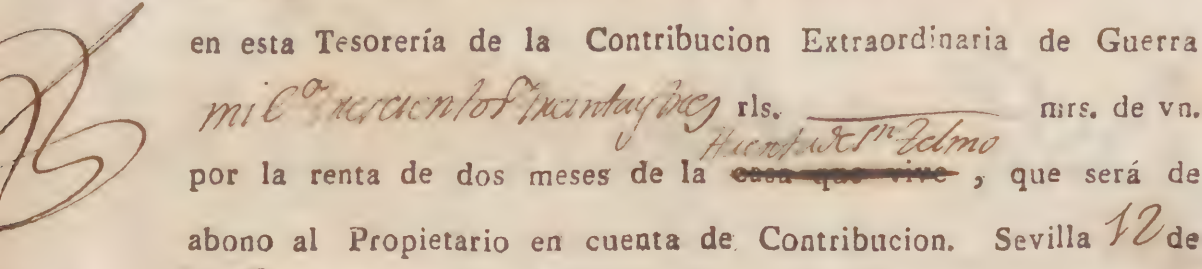 en esta Tesorería de la Contribucion Extraordinaria de Guerra
mil trescientos treinta y tres rls. mrs. de vn.
Huerta de Sn Telmo
por la renta de dos meses de la casa que vive, que será de
abono al Propietario en cuenta de Contribucion. Sevilla 12 de